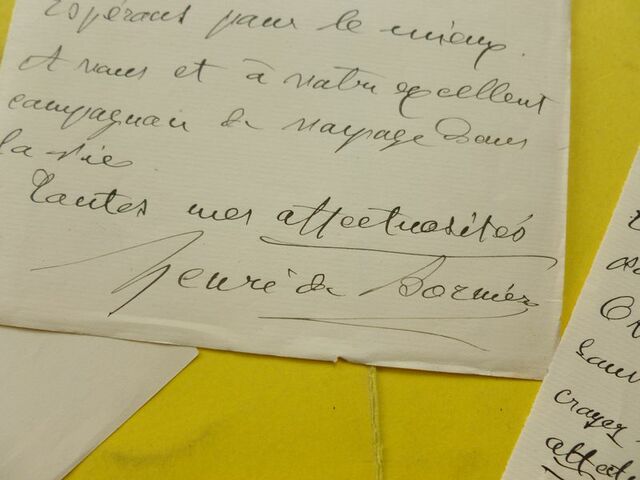 espérons pour le mieux.
A vous et à votre excellent
compagnon de voyage dans
la vie
Toutes mes affectuosités
Henri de Bornier
sauv
croyez
affectu